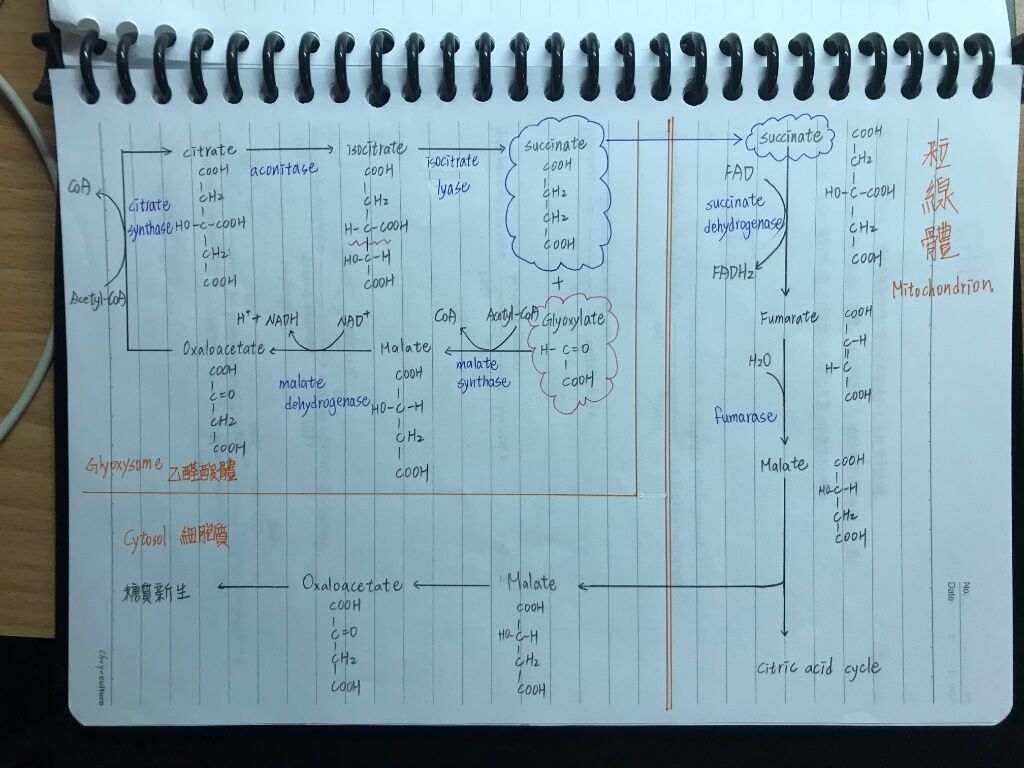 citrate
aconitase
isocitrate
isocitrate
lyase
succinate
CoA
citrate
synthase
COOH
CH2
HO-C-COOH
CH2
COOH
COOH
CH2
H-C-COOH
HO-C-H
COOH
COOH
CH2
CH2
COOH
+
Acetyl-CoA
H+ + NADH
NAD+
CoA
Acetyl-CoA
Glyoxylate
H-C=O
COOH
Oxaloacetate
malate
dehydrogenase
Malate
malate
synthase
COOH
C=O
CH2
COOH
COOH
HO-C-H
CH2
COOH
Glyoxysome 乙醛酸體
succinate
COOH
CH2
HO-C-COOH
CH2
COOH
FAD
succinate
dehydrogenase
FADH2
粒
線
體
Mitochondrion
Fumarate
COOH
C-H
H-C
COOH
H2O
fumarase
Malate
COOH
HO-C-H
CH2
COOH
citric acid cycle
Cytosol 細胞質
糖質新生
Oxaloacetate
COOH
C=O
CH2
COOH
Malate
COOH
HO-C-H
CH2
COOH
No.
Date